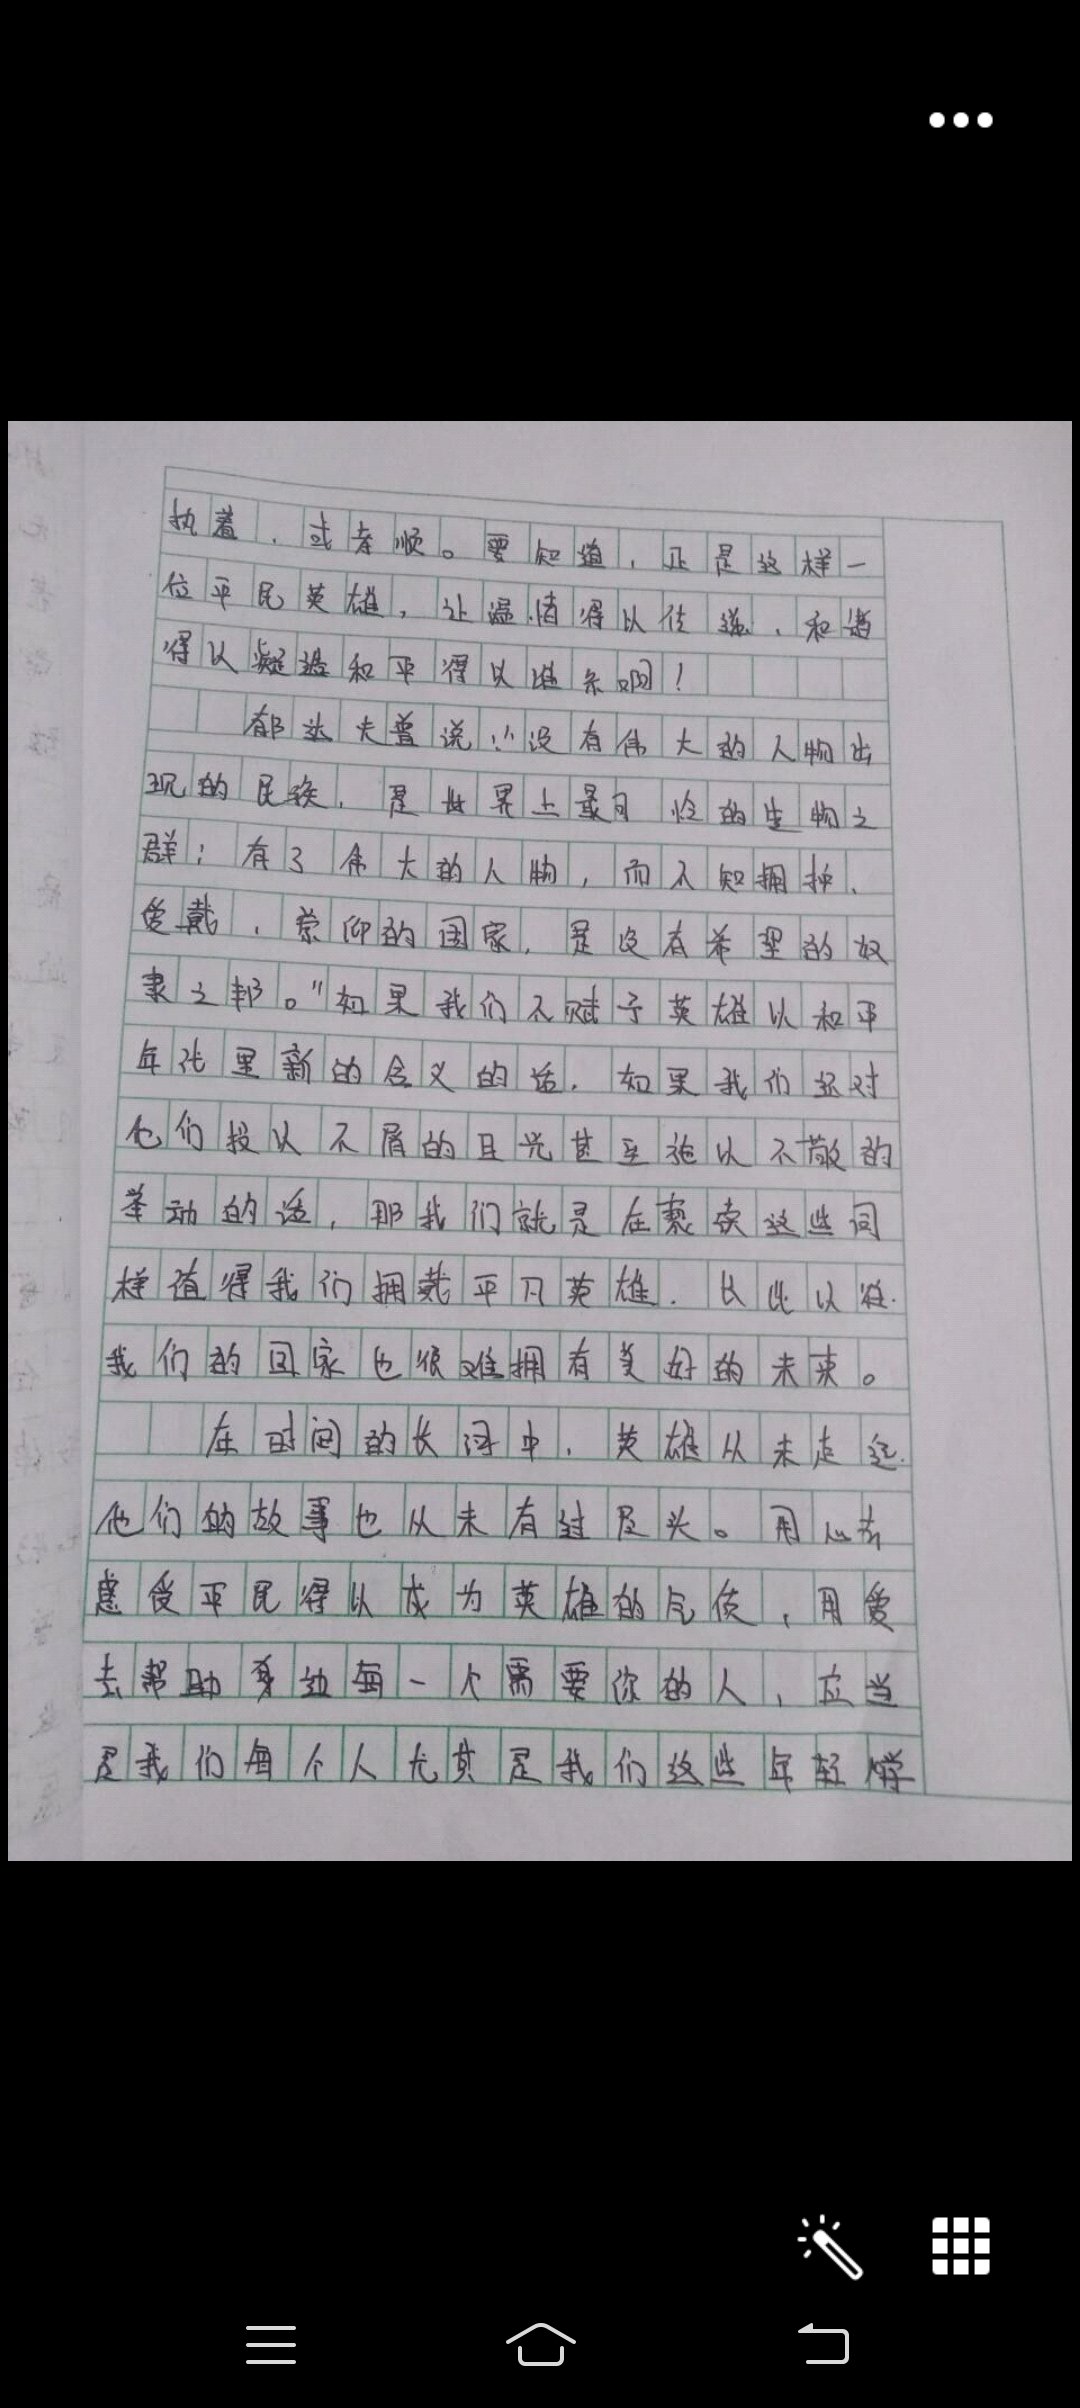 执着，或孝顺。要知道，正是这样一
位平民英雄，让温情得以传递、和谐
得以凝造和平得以维系啊！
郁达夫曾说：“没有伟大的人物出
现的民族，是世界上最可怜的生物之
群；有了伟大的人物，而不知拥护、
爱戴、崇仰的国家，是没有希望的奴
隶之邦。”如果我们不赋予英雄以和平
年代里新的含义的话，如果我们还对
他们投以不屑的目光甚至施以不敬的
举动的话，那我们就是在亵渎这些同
样值得我们拥戴平凡英雄．长此以往．
我们的国家也很难拥有美好的未来。
在时间的长河中，英雄从未走远．
他们的故事也从未有过尽头。用心去
感受平民得以成为英雄的气质，用爱
去帮助身边每一个需要你的人，应当
是我们每个人尤其是我们这些年轻学